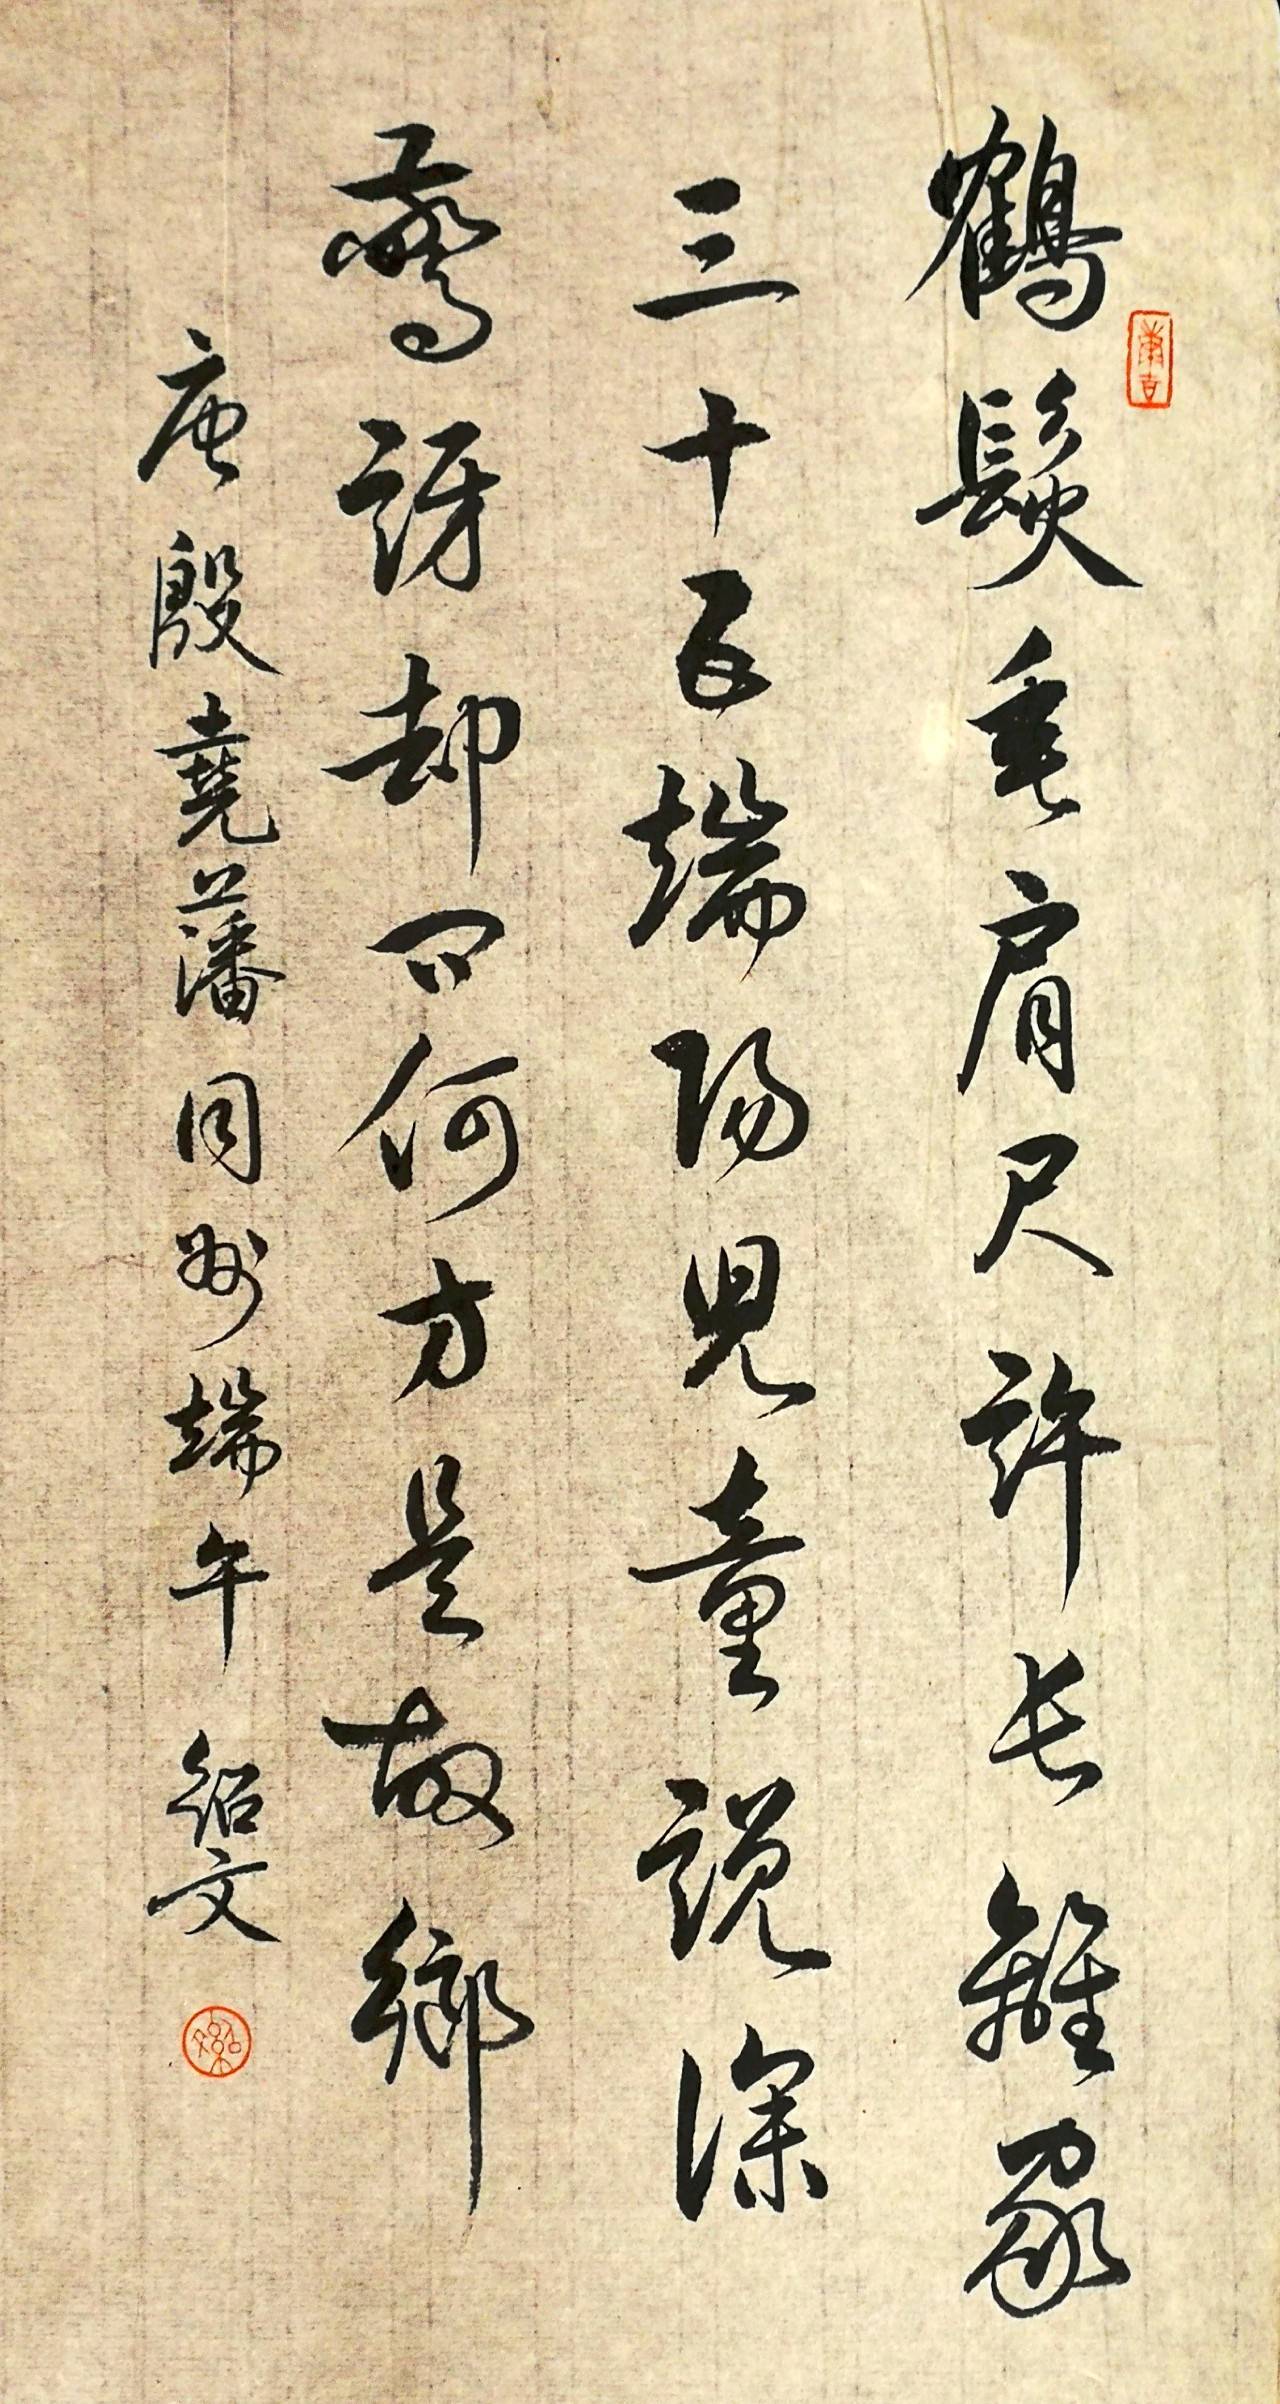 鶴髮垂肩尺許长離家
三十五端陽兒童説深
驚訝却問何方是故鄉
唐殷堯藩同州端午 紹文